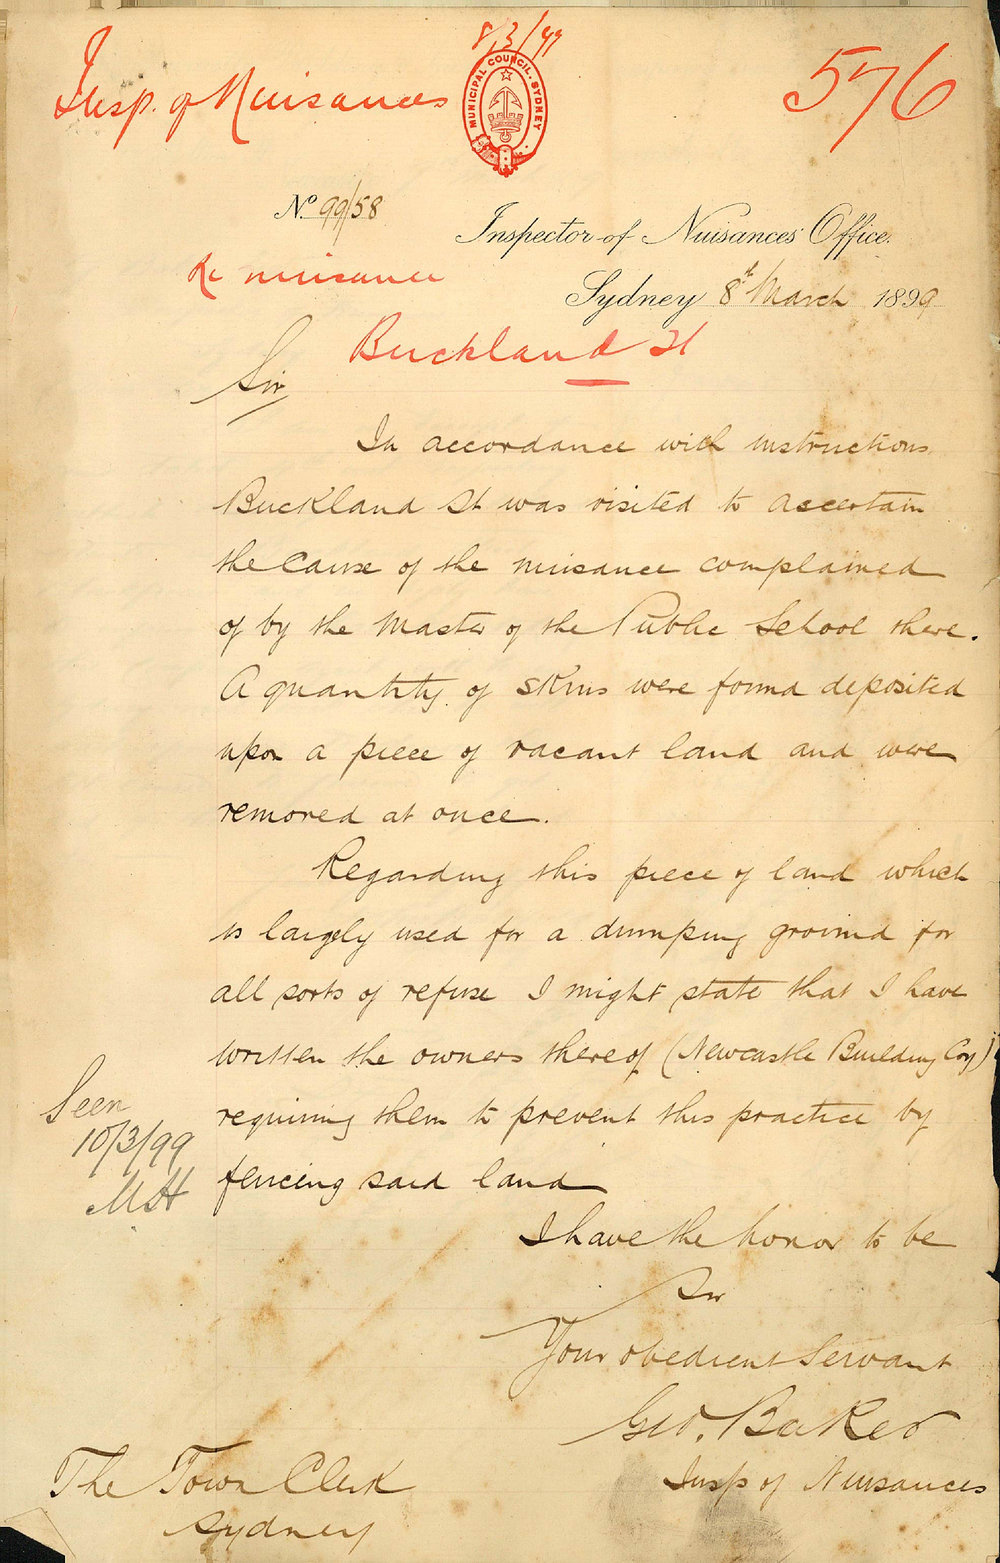 8/3/99
Insp. of Nuisances
576
MUNICIPAL COUNCIL. SYDNEY
No. 99/58
Inspector of Nuisances Office.
Re nuisance
Sydney 8th March 1899
Buckland St
Sir
In accordance with instructions
Buckland St was visited to ascertain
the cause of the nuisance complained
of by the Master of the Public School there.
A quantity of skins were found deposited
upon a piece of vacant land and were
removed at once.
Regarding this piece of land which
is largely used for a dumping ground for
all sorts of refuse I might state that I have
written the owners thereof (Newcastle Building Coy)
requiring them to prevent this practice by
fencing said land
Seen
10/3/99
I have the honor to be
Sir
Your obedient Servant
Geo. Baker
Insp of Nuisances
The Town Clerk
Sydney